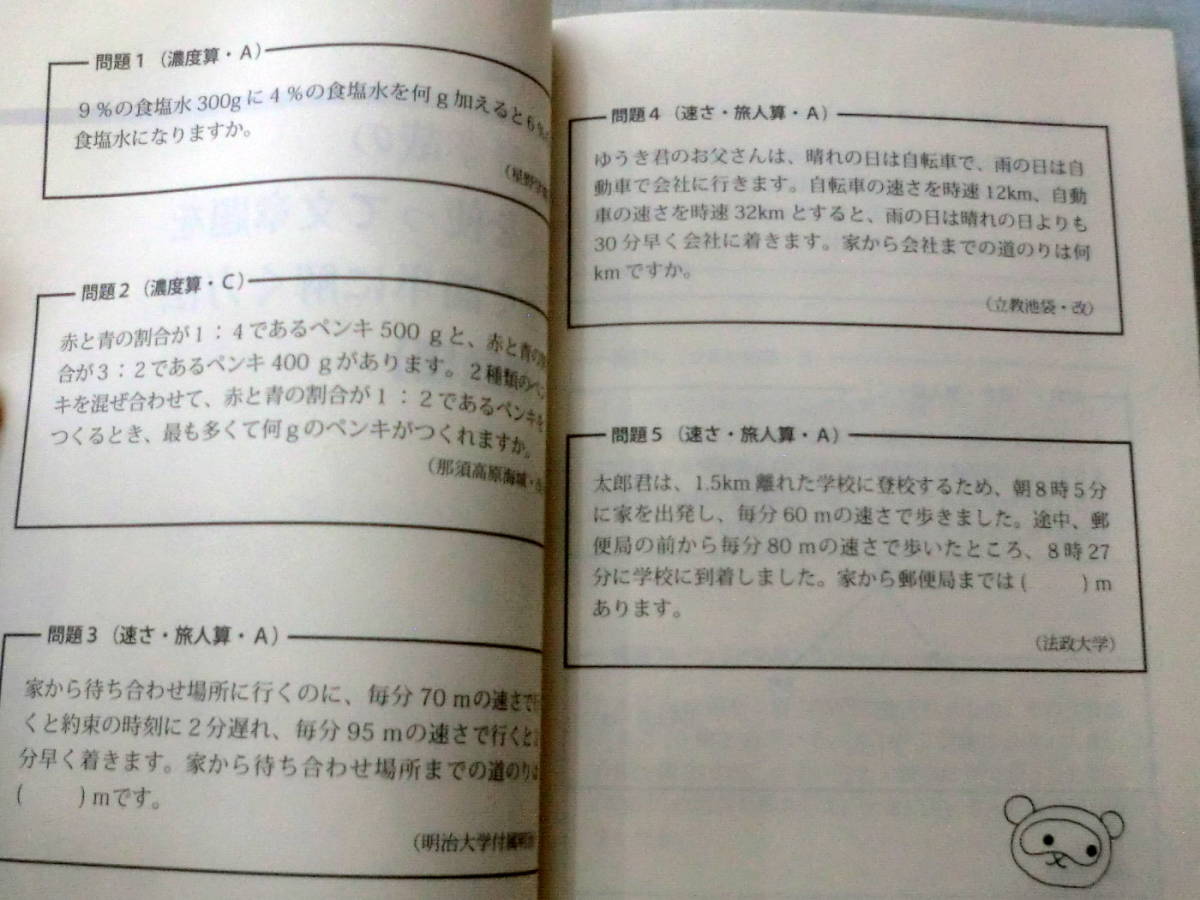 問題1（濃度算・A）
9％の食塩水300gに4％の食塩水を何g加えると6％
食塩水になりますか。
（星野学
問題2（濃度算・C）
赤と青の割合が1：4であるペンキ500gと、赤と青の
合が3：2であるペンキ400gがあります。2種類のペン
キを混ぜ合わせて、赤と青の割合が1：2であるペンキを
つくるとき、最も多くて何gのペンキがつくれますか。
（那須高原海城・
問題3（速さ・旅人算・A）
家から待ち合わせ場所に行くのに、毎分70mの速さで
くと約束の時刻に2分遅れ、毎分95mの速さで行くと
分早く着きます。家から待ち合わせ場所までの道のりは
(　　)mです。
（明治大学付属
問題4（速さ・旅人算・A）
ゆうき君のお父さんは、晴れの日は自転車で、雨の日は自
動車で会社に行きます。自転車の速さを時速12km、自動
車の速さを時速32kmとすると、雨の日は晴れの日よりも
30分早く会社に着きます。家から会社までの道のりは何
kmですか。
（立教池袋・改）
問題5（速さ・旅人算・A）
太郎君は、1.5km離れた学校に登校するため、朝8時5分
に家を出発し、毎分60mの速さで歩きました。途中、郵
便局の前から毎分80mの速さで歩いたところ、8時27
分に学校に到着しました。家から郵便局までは(　　)m
あります。
（法政大学）